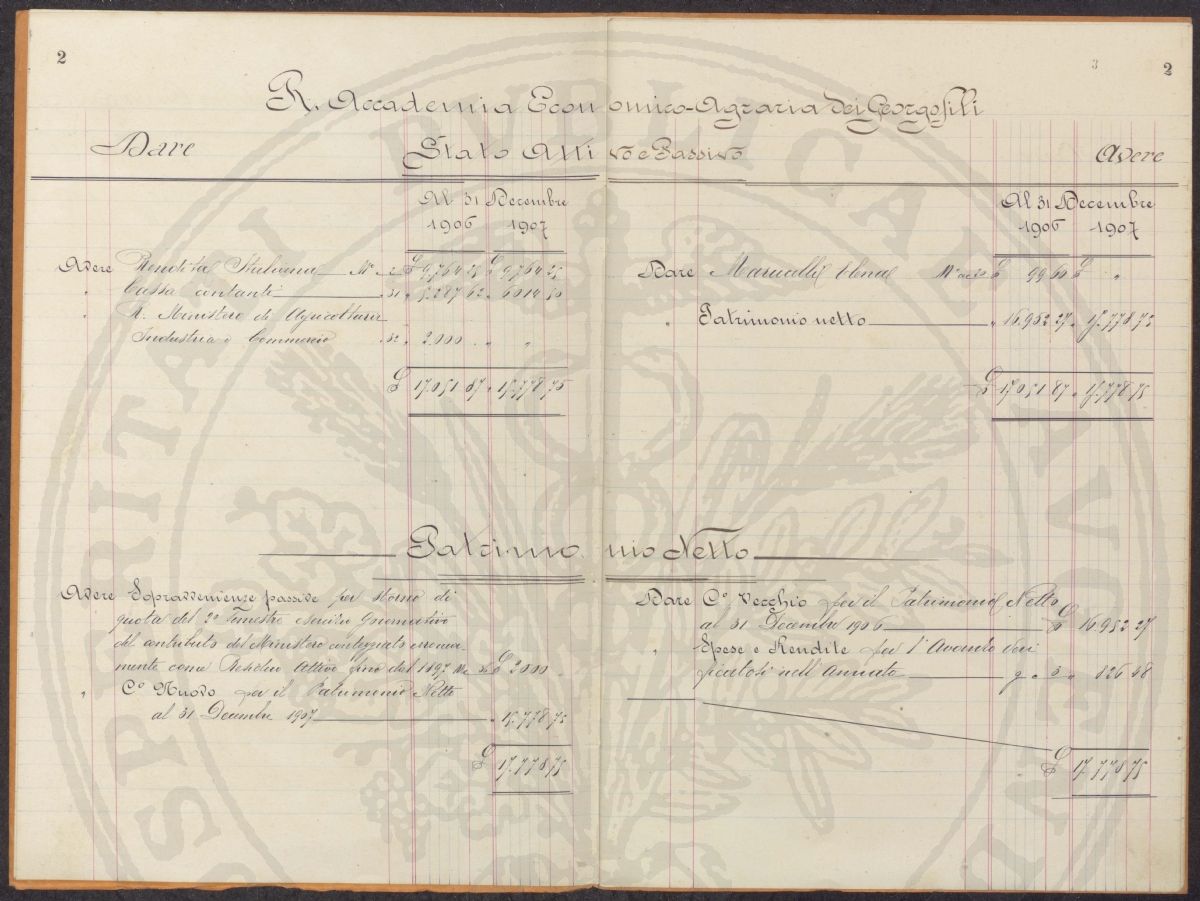 2
3
2
R. Accademia Economico-Agraria dei Georgofili
Dare
Stato Attivo e Passivo
Avere
Al 31 Decembre
1906 1907
Al 31 Decembre
1906 1907
Avere Rendita Italiana M° 2 £ 9,764 25 £ 9,764 25
" Cassa contanti " 31 " 5.287 62 " 6014 50
" R. Ministero di Agricoltura
Industria e Commercio " 32 " 2.000 " " "
£ 17.051 87 " 15.778 75
Dare Elena £ 99 60 £ "
" Patrimonio netto " 16.952 27 " 15.778 75
£ 17.051 87 " 15.778 75
Patrimonio Netto
Avere Sopravvenienze passive per storno di
quota del 2° esercizio
del contributo del Ministero erronea-
mente come Attivo fino dal 1897 £ 2000 "
" C° Nuovo per il Patrimonio Netto
al 31 Decembre 1907 " 15.778 75
£ 17.778 75
Dare C° Vecchio per il Patrimonio Netto
al 31 Decembre 1906 £ 16.952 27
" Spese e Rendite per l'Avanzo veri
ficatosi nell'Annata 3 " 826 48
£ 17.778 75